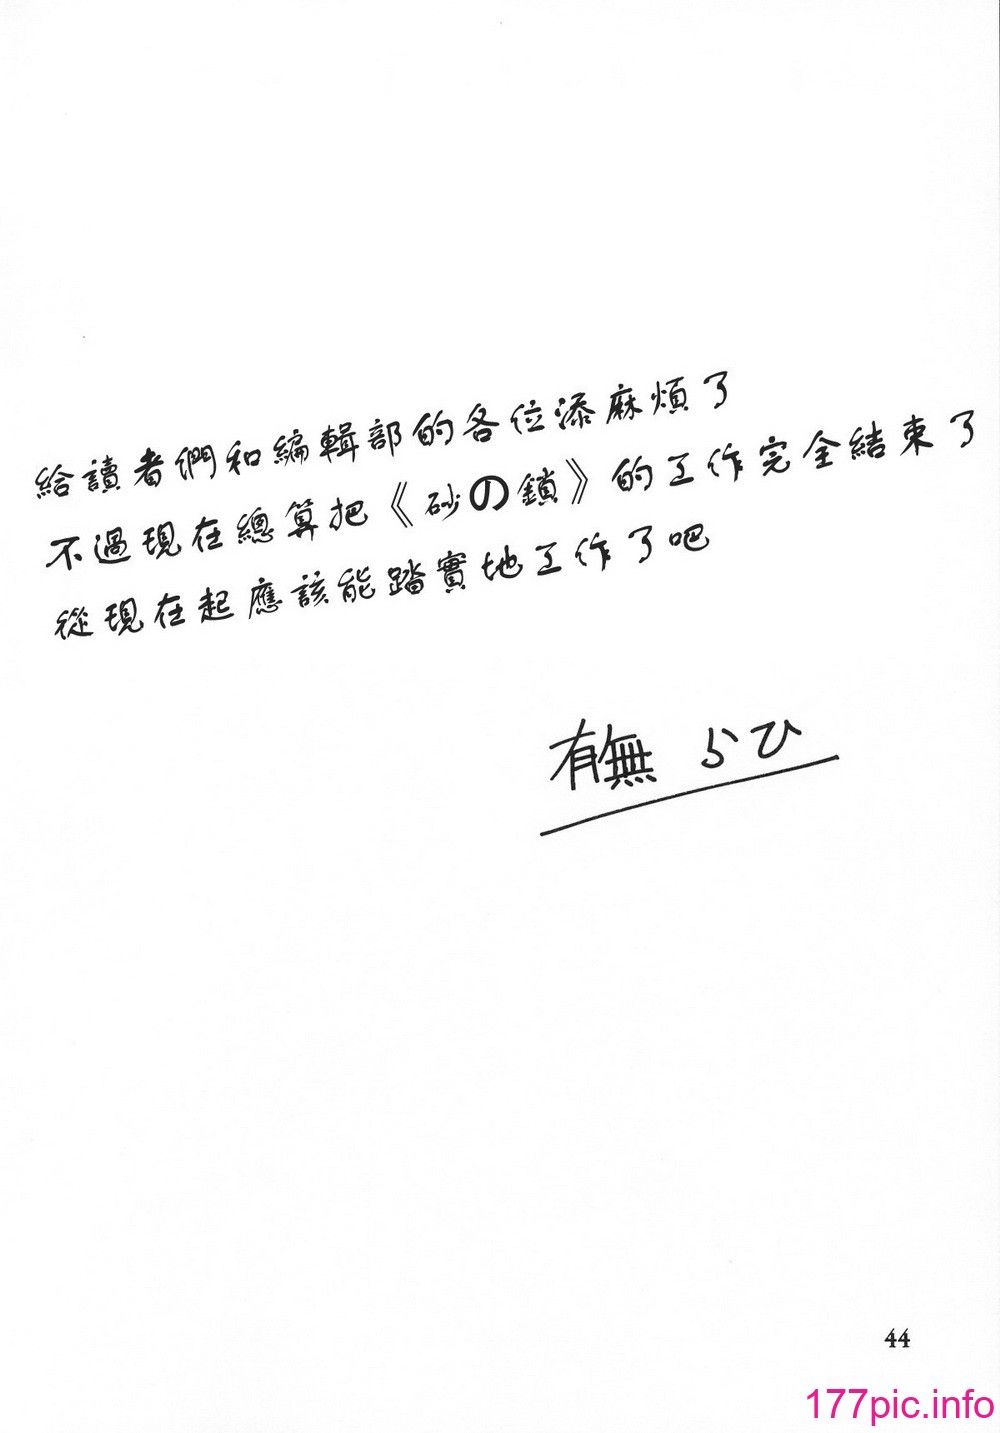 給讀者們和編輯部的各位添麻煩了
不過現在總算把《砂の鎖》的工作完全結束了
從現在起應該能踏實地工作了吧
有無 らひ
44
177pic.info